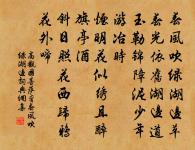 春風吹綠湖邊草
春光依舊湖邊道
玉勒錦障泥少年
遊冶時
煙明花似繡且醉
旗亭酒
斜日照花西歸鴉
花外啼
高觀國菩薩蠻春風吹
綠湖邊詞典網集